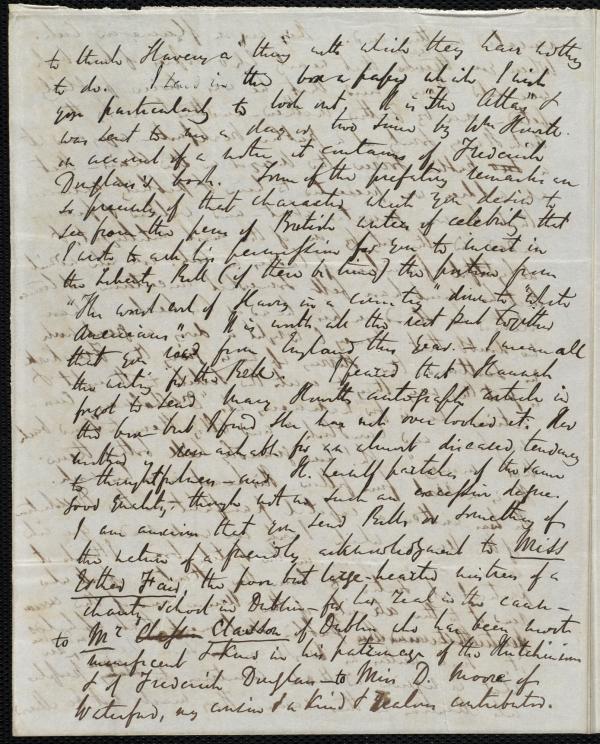 to think Slavery a thing with which they have nothing
to do. I send in the box a paper which I wish
you particularly to look out, It is "the Atlas" &
was sent to me a day or two since by Wm Howitt
on account of a notice it contains of Frederick
Douglass's book. Some of the prefatory remarks are
so precisely of that character which you desire to
see from the pens of British writers of celebrity that
I wrote to ask his permission for you to insert in
the Liberty Bell (if there be time) the portion from
"The worst evil of Slavery in a country" down to "White
Americans". It is worth all the rest put together
that you read from England this year - I mean all
the writing for the Bell. I feared that Hannah
forgot to send Mary Howitt's autograph article in
the box but I find she has not overlooked it. Her
mother is remarkable for an almost diseased tendency
to thoughtfulness - and H. herself partakes of the same
good quality - though not in such an excessive degree.
I am anxious that you send Bells or something of
the nature of a friendly acknowledgment to Miss
Esther Fair, the poor but large-hearted mistress of a
charity school in Dublin - for her zeal in the cause -
to Mr Clawson of Dublin who has been most
munificent & kind in his patronage of the Hutchinsons
& of Frederick Douglass - to Miss D. Moore of
Waterford, my cousin & a kind & zealous contributor.